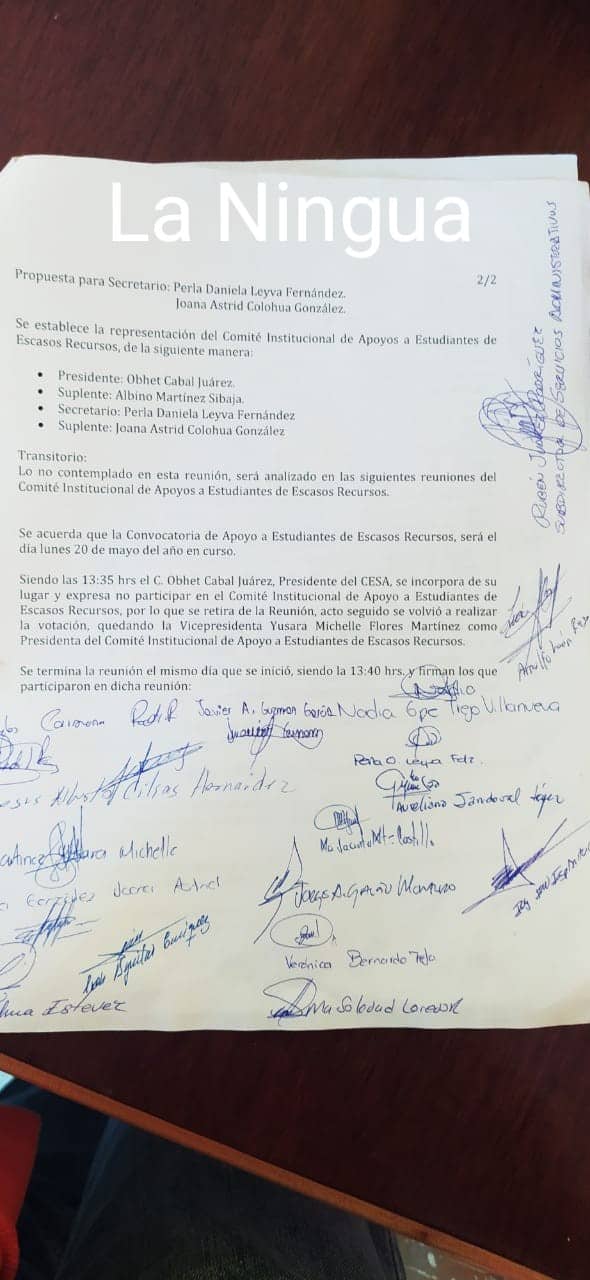 La Ningua
2/2
Propuesta para Secretario: Perla Daniela Leyva Fernández.
Joana Astrid Colohua González.
Se establece la representación del Comité Institucional de Apoyos a Estudiantes de
Escasos Recursos, de la siguiente manera:
• Presidente: Obhet Cabal Juárez.
• Suplente: Albino Martínez Sibaja.
• Secretario: Perla Daniela Leyva Fernández
• Suplente: Joana Astrid Colohua González
Transitorio:
Lo no contemplado en esta reunión, será analizado en las siguientes reuniones del
Comité Institucional de Apoyos a Estudiantes de Escasos Recursos.
Se acuerda que la Convocatoria de Apoyo a Estudiantes de Escasos Recursos, será el
día lunes 20 de mayo del año en curso.
Siendo las 13:35 hrs el C. Obhet Cabal Juárez, Presidente del CESA, se incorpora de su
lugar y expresa no participar en el Comité Institucional de Apoyo a Estudiantes de
Escasos Recursos, por lo que se retira de la Reunión, acto seguido se volvió a realizar
la votación, quedando la Vicepresidenta Yusara Michelle Flores Martínez como
Presidenta del Comité Institucional de Apoyo a Estudiantes de Escasos Recursos.
Se termina la reunión el mismo día que se inició, siendo la 13:40 hrs. y firman los que
participaron en dicha reunión:
Javier A. Guzman García
Nadia Gpe Trigo Villanueva
Perla D. Leyva Fdz.
Hernández
Aureliano Sandoval
Michelle
Jorge A.
Verónica Bernardo Tejo
Estevez
Ma Soledad
RUBÉN JUÁREZ RODRÍGUEZ
SUBDIRECTOR DE SERVICIOS ADMINISTRATIVOS